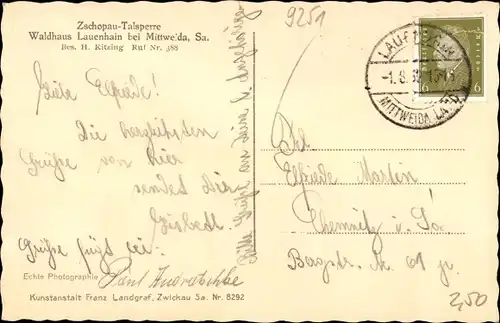 Zschopau-Talsperre
Waldhaus Lauenhain bei Mittweida, Sa.
Bes. H. Kitzing Ruf Nr. 388
9251
LAUENHAIN
-1.8.3 15-16
MITTWEIDA LAND
6 6
Liebe Elfriede!
Die herzlichsten
Grüße von hier
sendet Dir
Grüße fügt bei:
Paul
Bitte Grüße an Deine l. Angehörigen
Frl.
Elfriede Martin
Chemnitz i. Sa.
Bergstr. Nr. 61
Echte Photographie
Kunstanstalt Franz Landgraf, Zwickau Sa. Nr. 8292
2,50